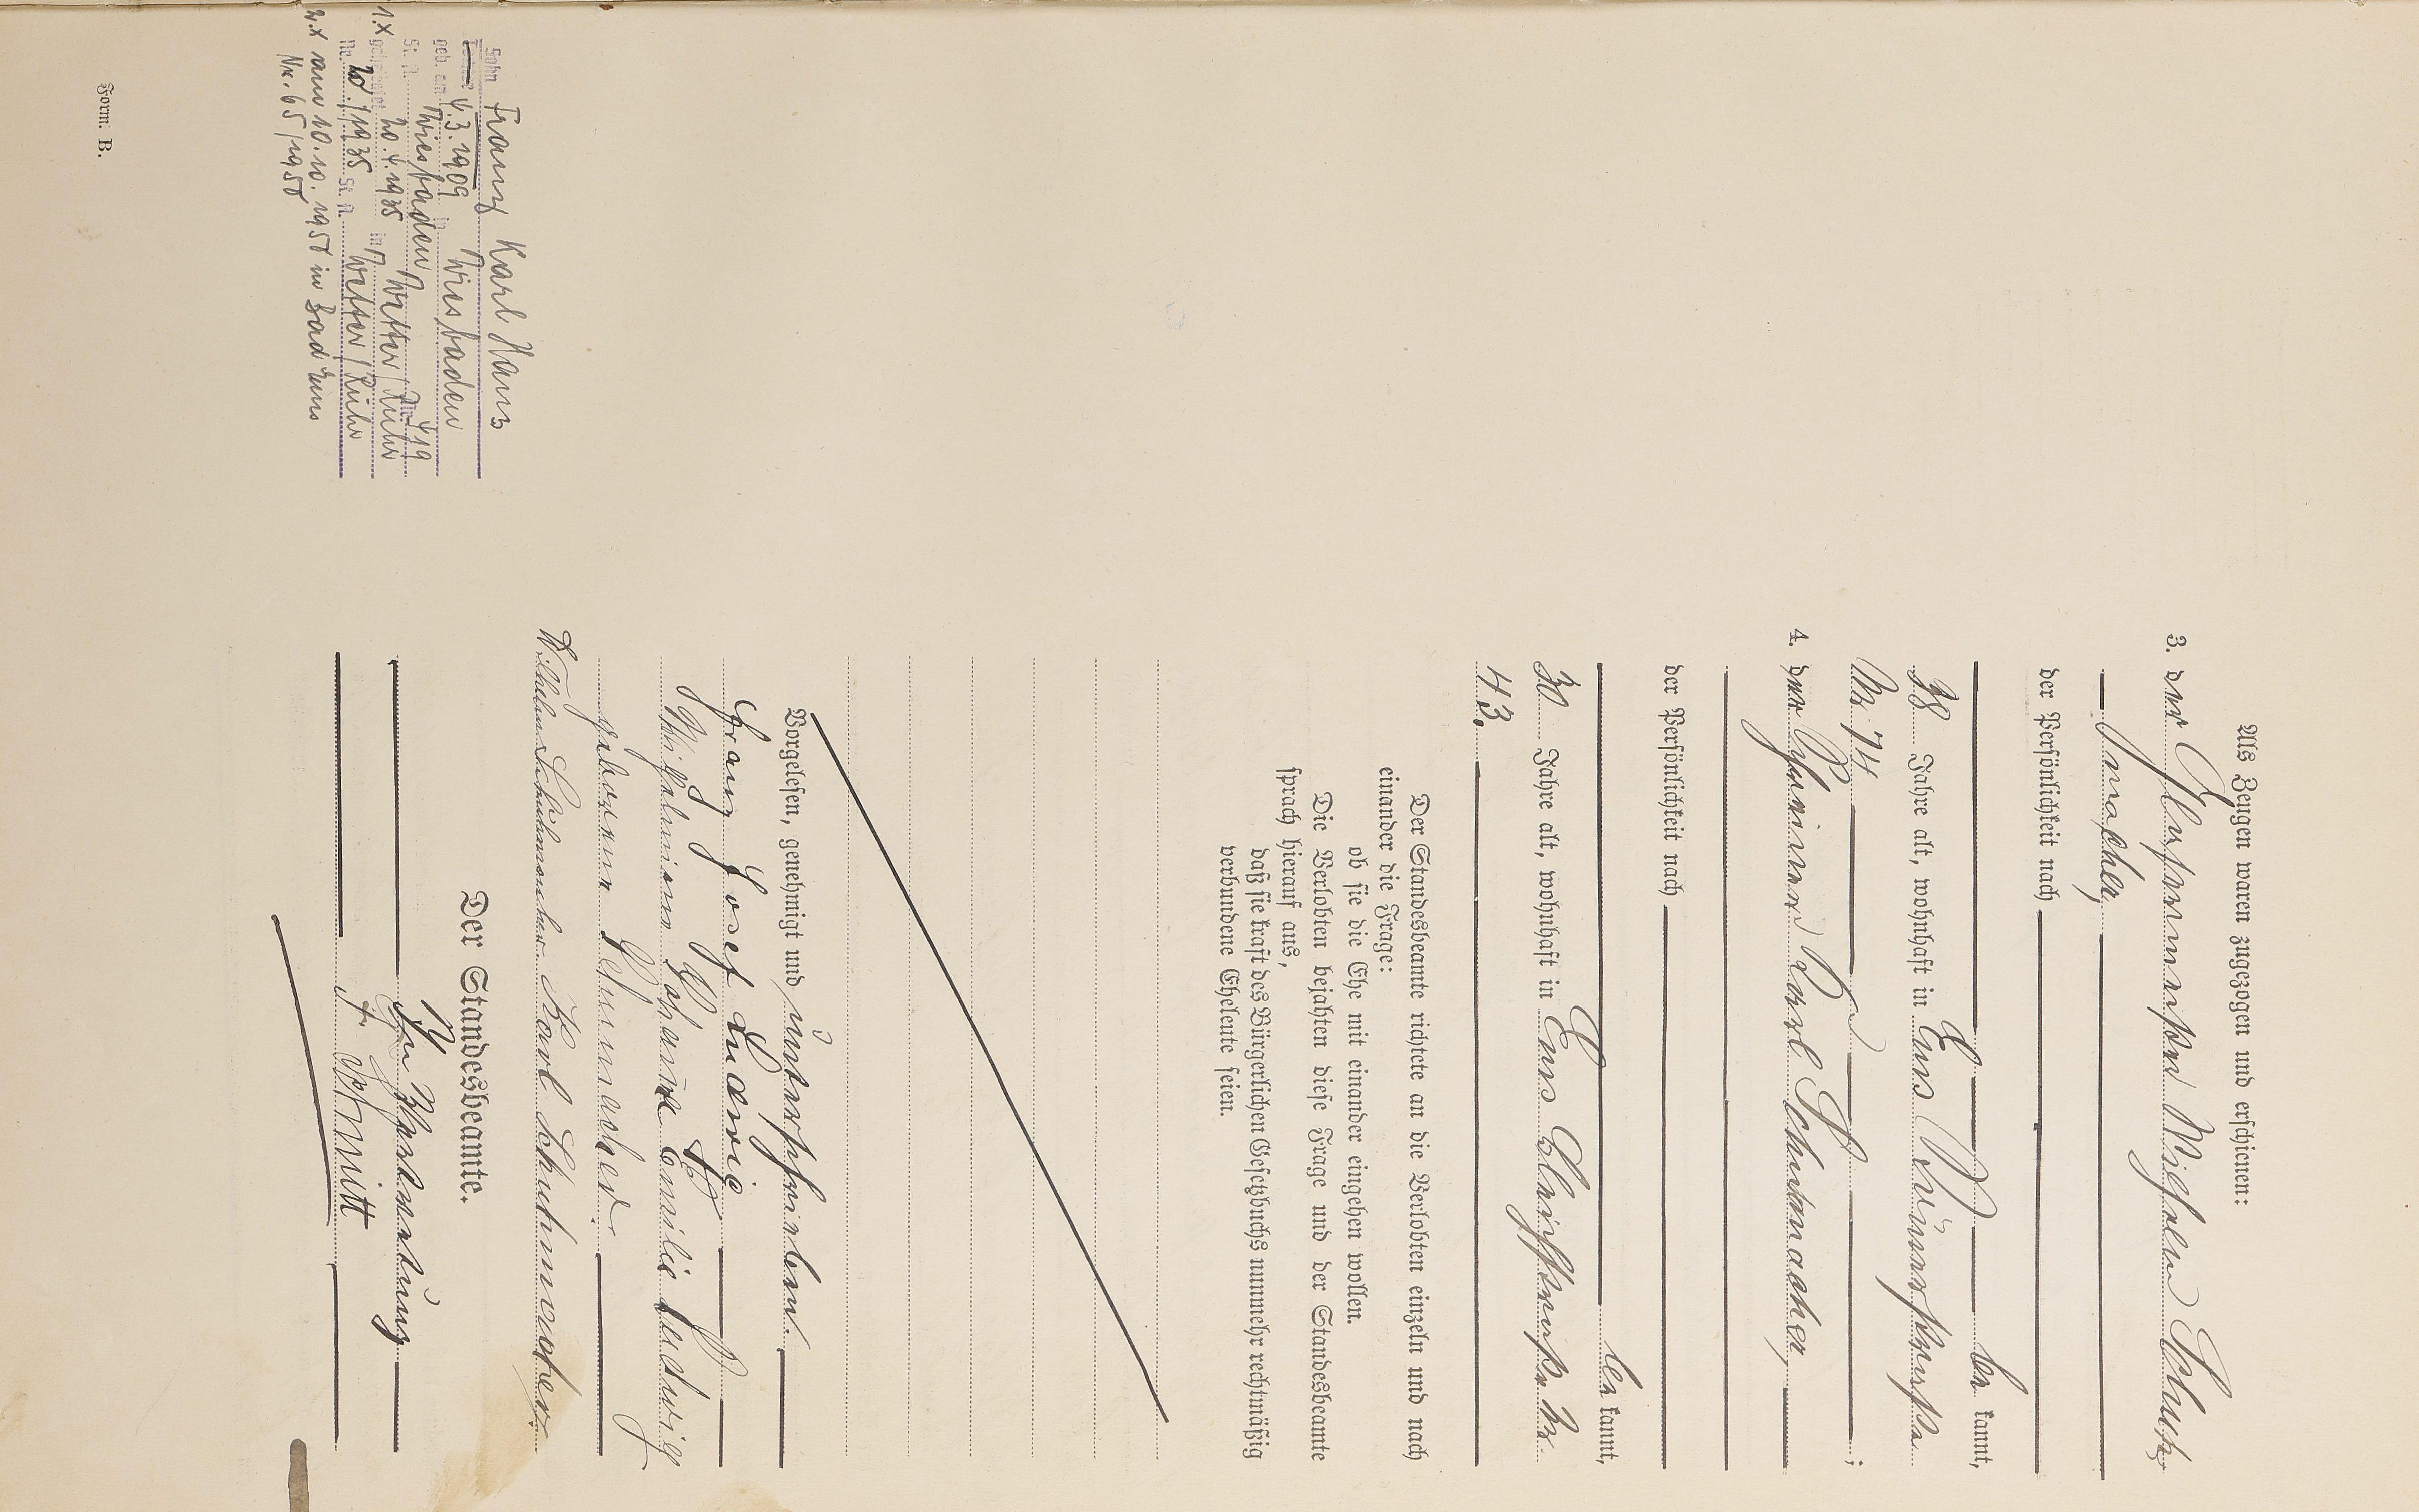 Als Zeugen waren zugezogen und erschienen:
3. der Schuhmacher Wilhelm Schuh-
macher,
der Persönlichkeit nach
be kannt,
38 Jahre alt, wohnhaft in Ems
Nr. 74;
4. der Karl Schuhmacher,
der Persönlichkeit nach
be kannt,
30 Jahre alt, wohnhaft in Ems Nr.
43.
Der Standesbeamte richtete an die Verlobten einzeln und nach
einander die Frage:
ob sie die Ehe mit einander eingehen wollen.
Die Verlobten bejahten diese Frage und der Standesbeamte
sprach hierauf aus,
daß sie kraft des Bürgerlichen Gesetzbuchs nunmehr rechtmäßig
verbundene Eheleute seien.
Vorgelesen, genehmigt und unterschrieben.
Franz Josef Ludwig
Wilhelmine Johanna Emilie Ludwig
geborene Schuhmacher
Wilhelm Schuhmacher. Karl Schuhmacher.
Der Standesbeamte.
In Vertretung
Schmitt
Sohn Franz Karl Hans
geb. am 4.3.1909 in Wiesbaden
St. A. Wiesbaden Nr. 419
1. X geheiratet 20.4.1935 in Wetter/Ruhr
Nr. 20/1935 St. A. Wetter/Ruhr
2. X am 10.10.1950 in Bad Ems
Nr. 65/1950
Form. B.